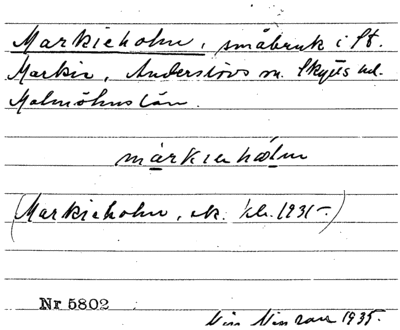 Markieholm, småbruk i St.
Markie, Anderslövs sn. Skytts hd.
Malmöhus län.
markieholm
(Markieholm, ek. kbl. 1931-.)
Nr 5802
1935.